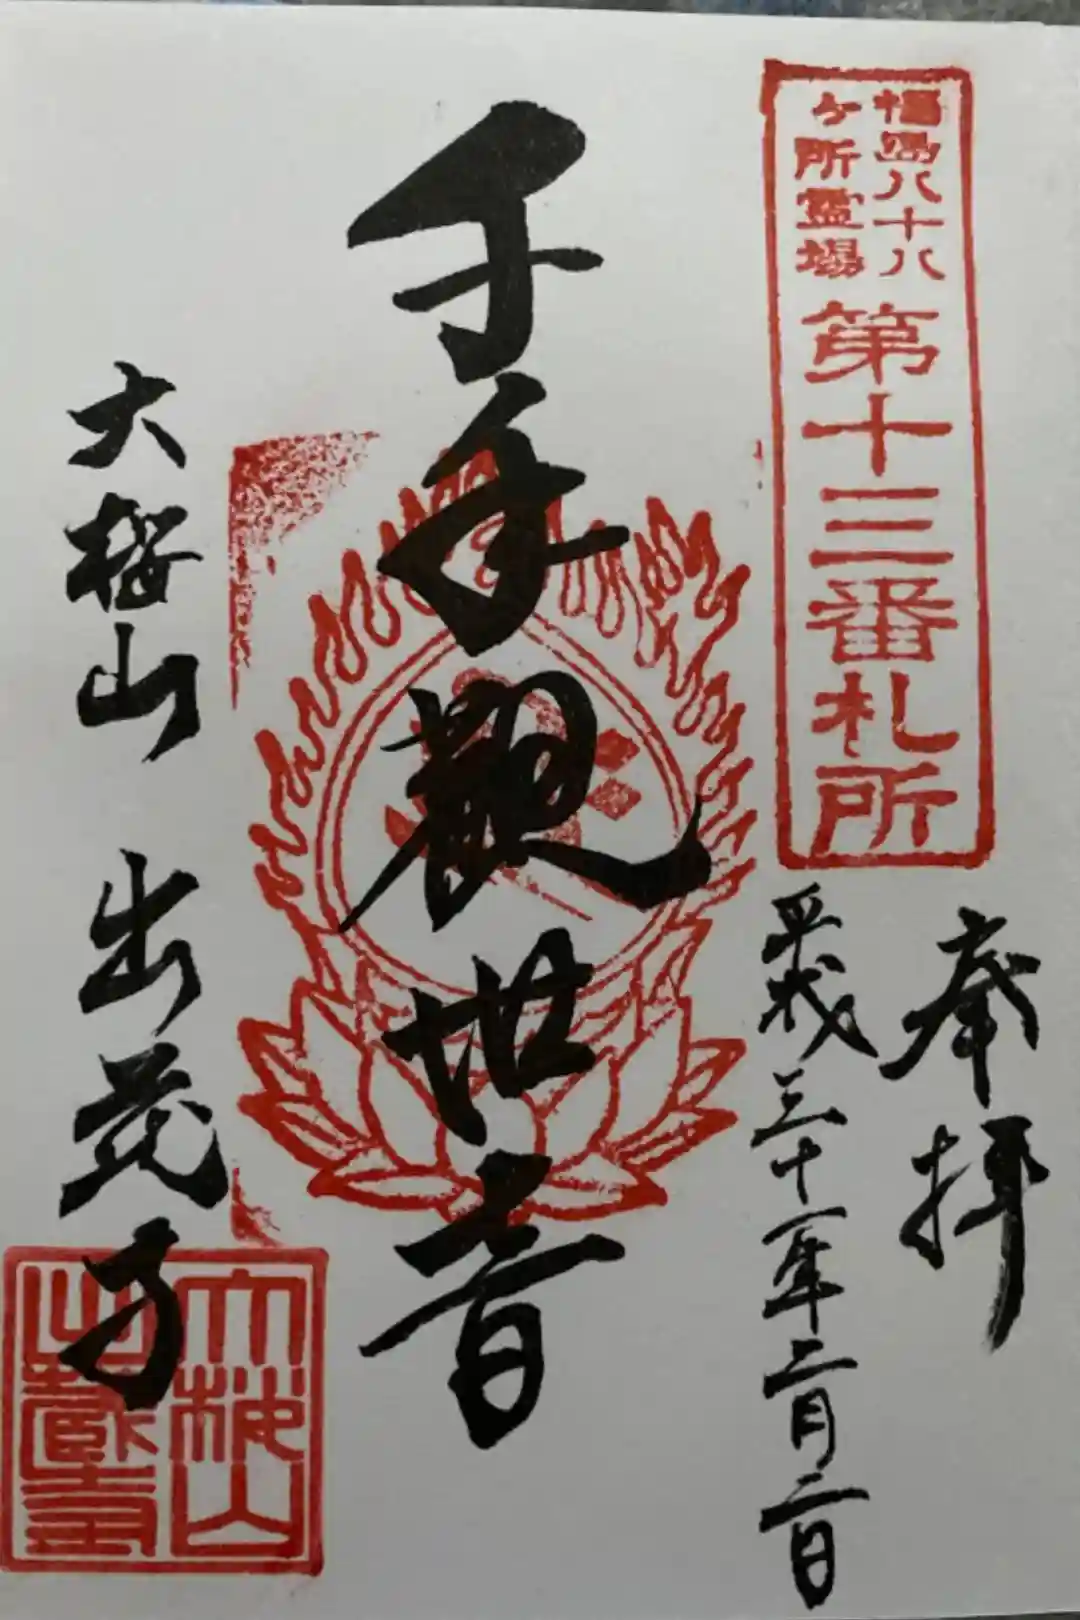 福島八十八
ヶ所霊場
第十三番札所
奉拝
平成三十一年二月二日
千手観世音
大桜山 出蔵寺
大桜山
出蔵寺